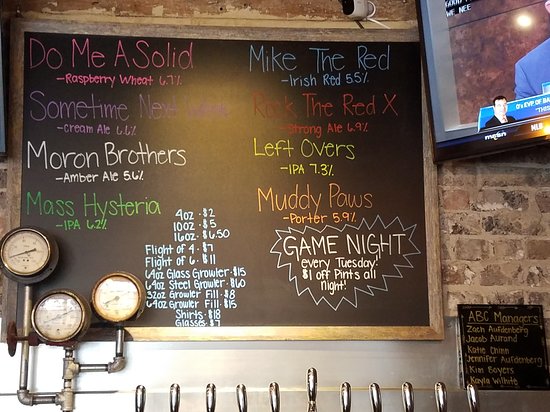 Do Me A Solid
-Raspberry Wheat 6.7%
Sometime Next
-Cream Ale 6.6%
Moron Brothers
-Amber Ale 5.6%
Mass Hysteria
-IPA 6.2%
4oz - $2
10oz - $5
16oz - $6.50
Flight of 4 - $7
Flight of 6 - $11
64oz Glass Growler - $15
64oz Steel Growler - $60
32oz Growler Fill - $8
64oz Growler Fill - $15
Shirts - $18
Glasses - $7
Mike The Red
-Irish Red 5.5%
Rock The Red X
-Strong Ale 6.9%
Left Overs
-IPA 7.3%
Muddy Paws
-Porter 5.9%
GAME NIGHT
every Tuesday!
$1 off Pints all
night!
WE NEE
O's EVP OF BA
"THIS
masn
MLB
ABC Managers
Zach Aufdenberg
Jacob Aurand
Katie Chinn
Jennifer Aufdenberg
Kim Boyers
Kayla Willhite